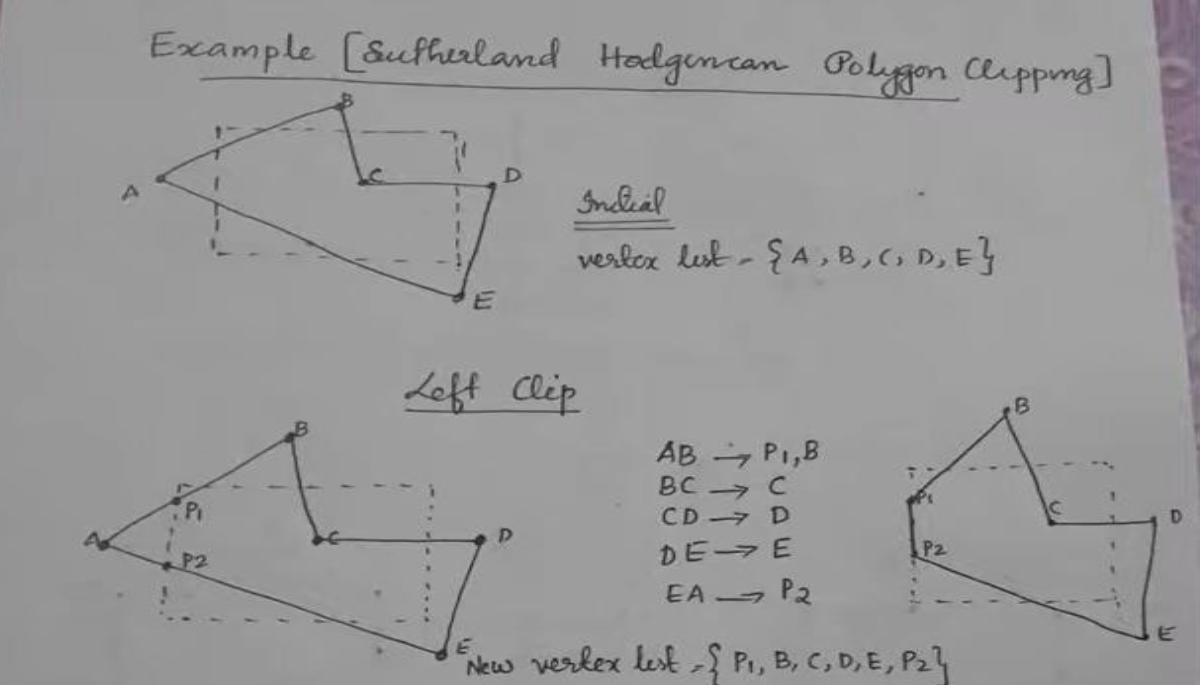 Example [Sutherland Hodgeman Polygon Clipping]
B
A
C
D
E
Initial
vertex list - {A, B, C, D, E}
Left Clip
B
P1
A
C
D
P2
E
AB → P1, B
BC → C
CD → D
DE → E
EA → P2
B
P1
C
D
P2
E
New vertex list - {P1, B, C, D, E, P2}